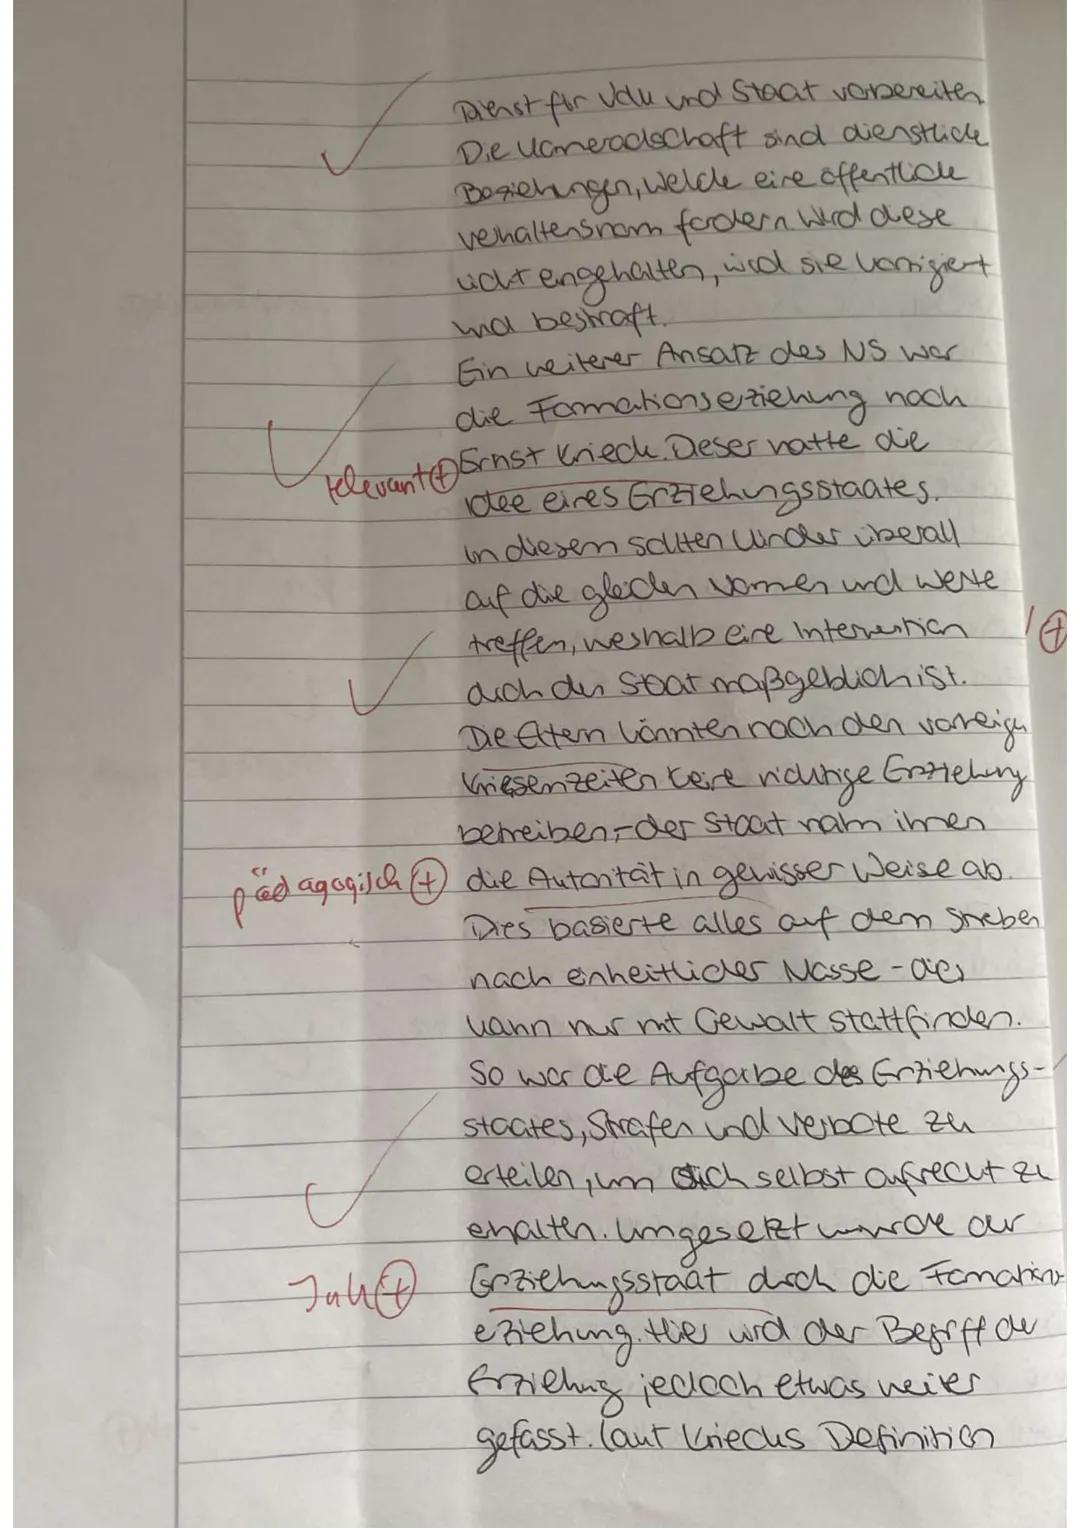 Dienst für Volk und Staat vorbereiten.
Die Kameradschaft sind dienstliche
Beziehungen, welche eine öffentliche
verhaltensnorm fordern. Wird diese
nicht engehalten, wird sie korrigiert
und bestraft.
Ein weiterer Ansatz des NS war
die Formationserziehung nach
relevant + Ernst Krieck. Dieser hatte die
Idee eines Erziehungsstaates.
In diesem sollten Kinder überall
auf die gleichen Normen und Werte
treffen, weshalb eine Intervention
durch den Staat maßgeblich ist.
Die Eltern könnten nach den
Kriesenzeiten keine richtige Erziehung
betreiben, - der Staat nahm ihnen
pädagogisch + die Autorität in gewisser Weise ab.
Dies basierte alles auf dem Streben
nach einheitlicher Masse - dies
kann nur mit Gewalt stattfinden.
So war die Aufgabe des Erziehungs-
staates, Strafen und Verbote zu
erteilen, um sich selbst aufrecht zu
erhalten. Umgesetzt wurde der
Erziehungsstaat durch die Formations
erziehung. Hier wird der Begriff der
Erziehung jedoch etwas weiter
gefasst. Laut Kriecks Definition